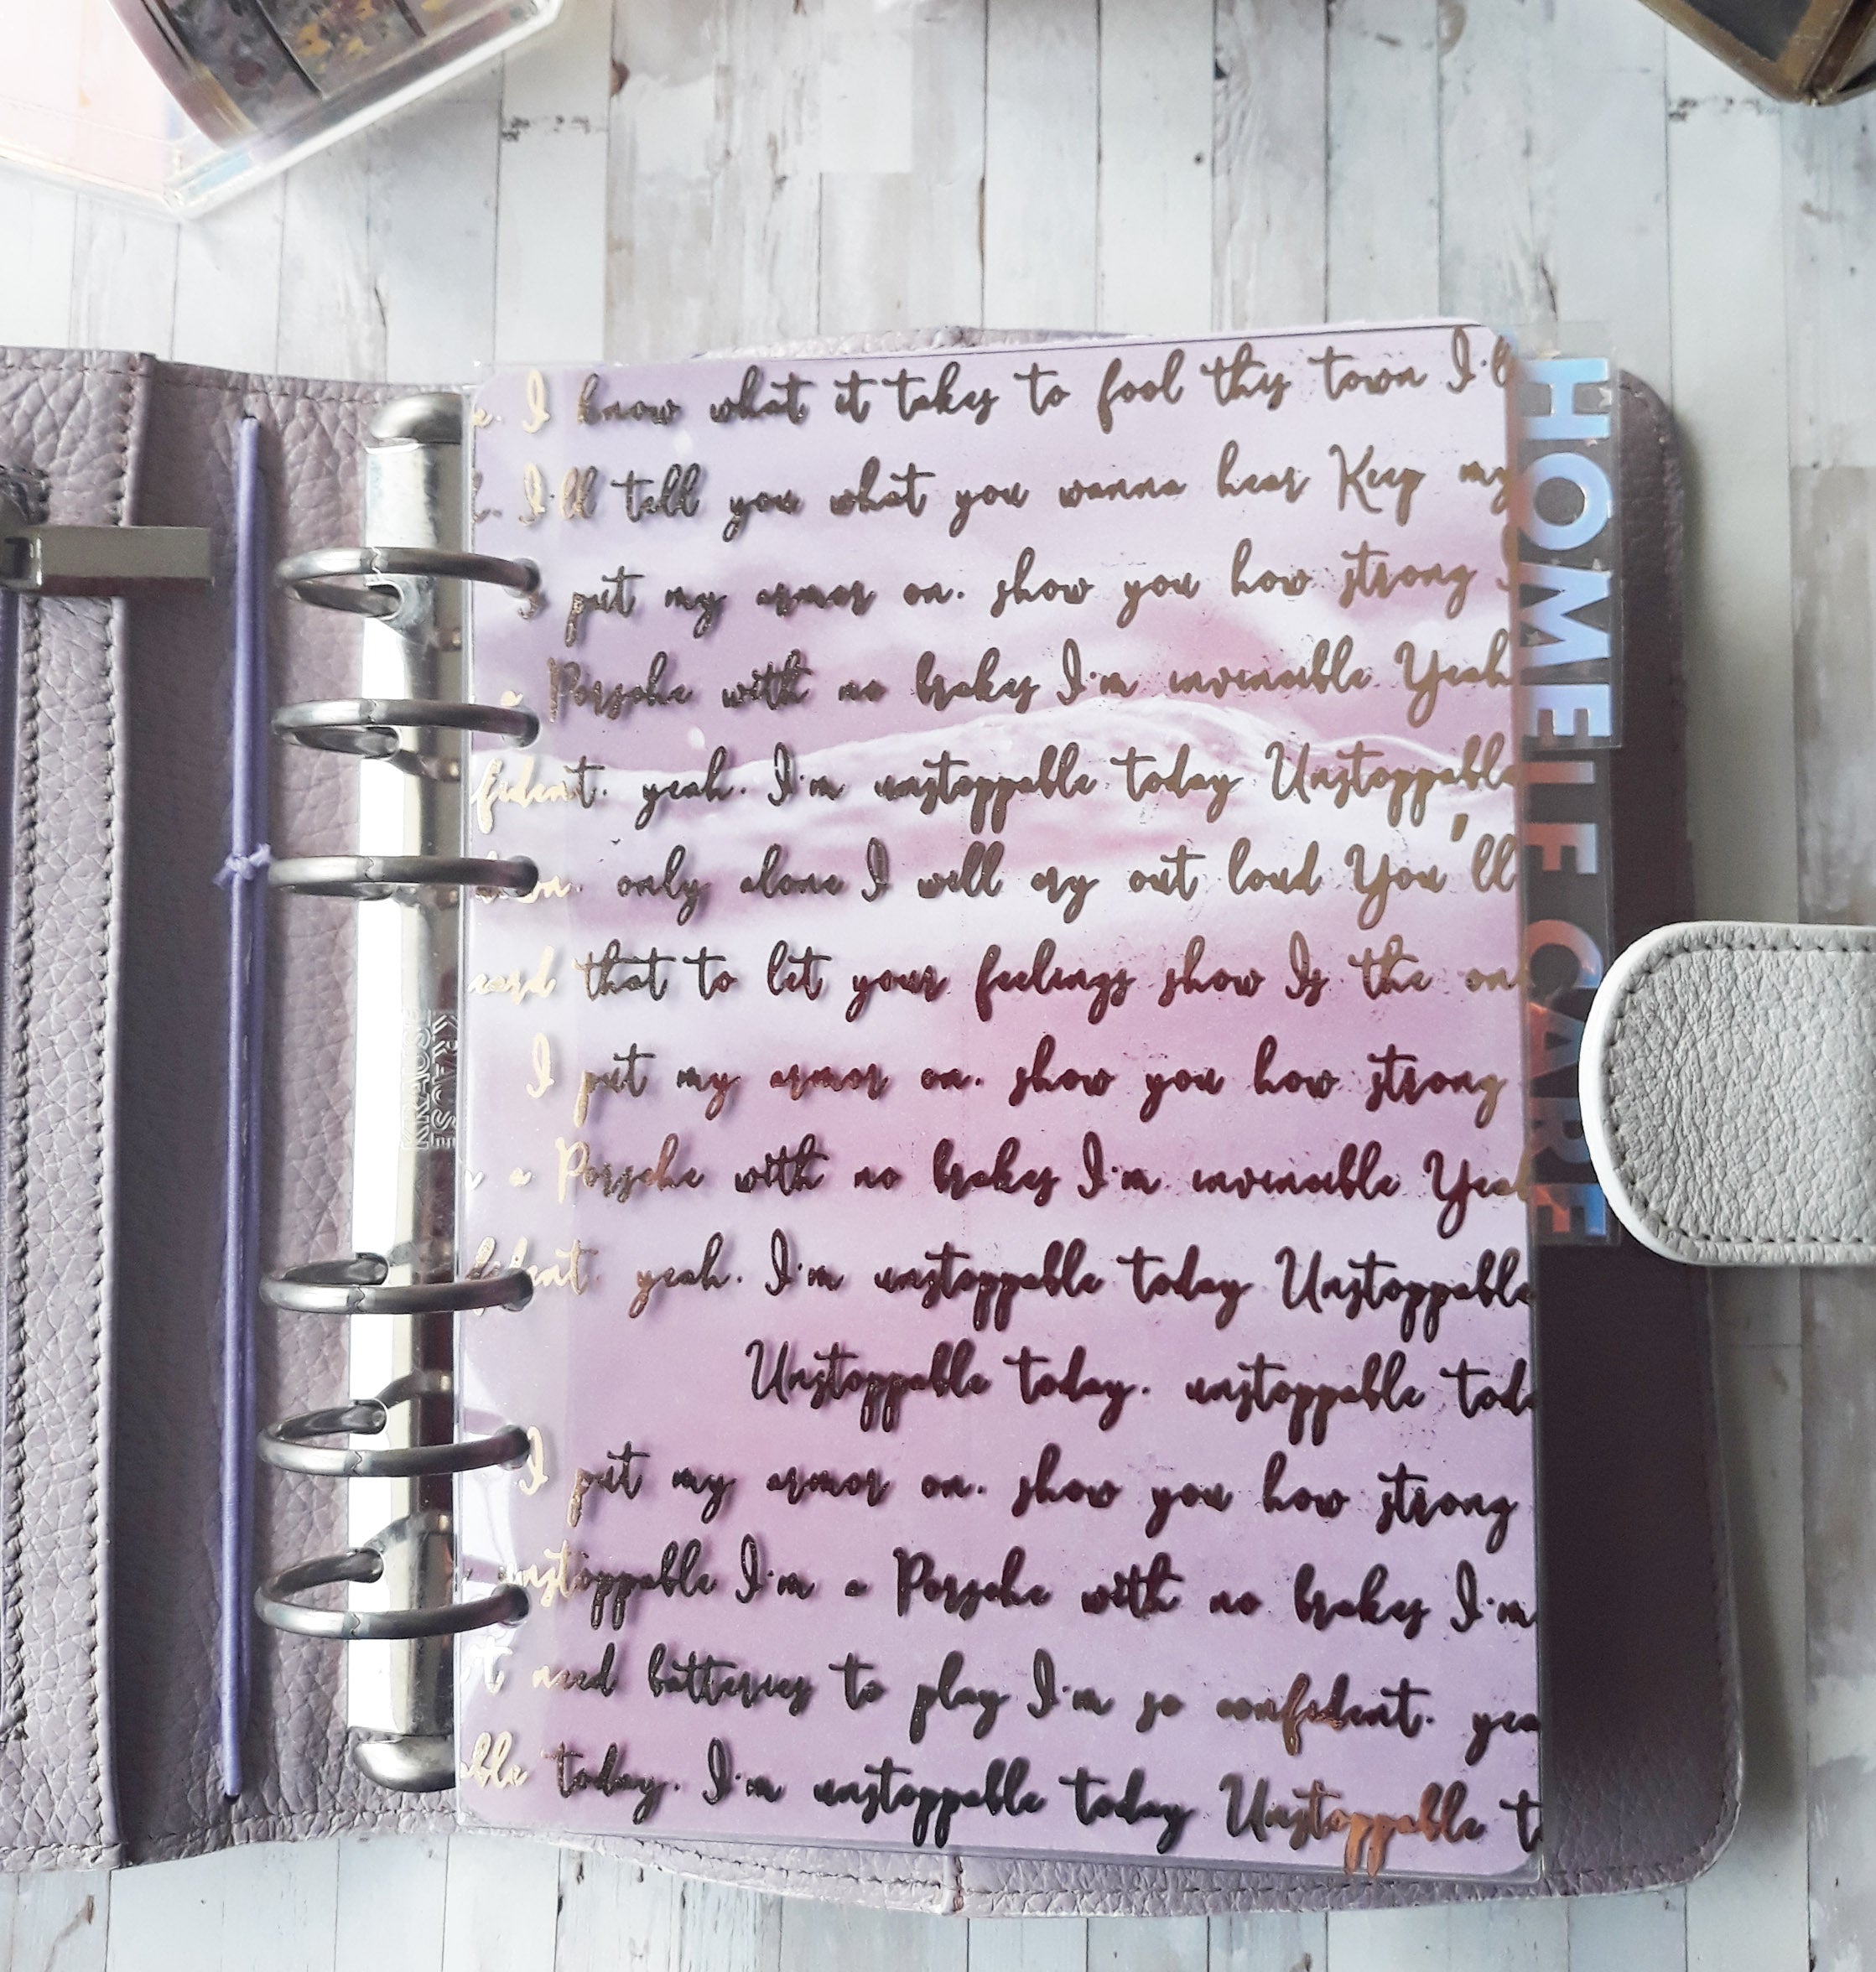 I know what it takes to fool this town I'll
I'll tell you what you wanna hear Keep my
I put my armor on. show you how strong I
a Porsche with no brakes I'm invincible Yeah
fident. yeah. I'm unstoppable today Unstoppable
only alone I will cry out loud You'll
that to let your feelings show Is the on
I put my armor on. show you how strong
a Porsche with no brakes I'm invincible Yeah
fident. yeah. I'm unstoppable today Unstoppable
Unstoppable today. unstoppable toda
I put my armor on. show you how strong
unstoppable I'm a Porsche with no brakes I'm
t need batteries to play I'm so confident. yea
ble today. I'm unstoppable today Unstoppable t
HOME
LIFE CARE
KRAUSE